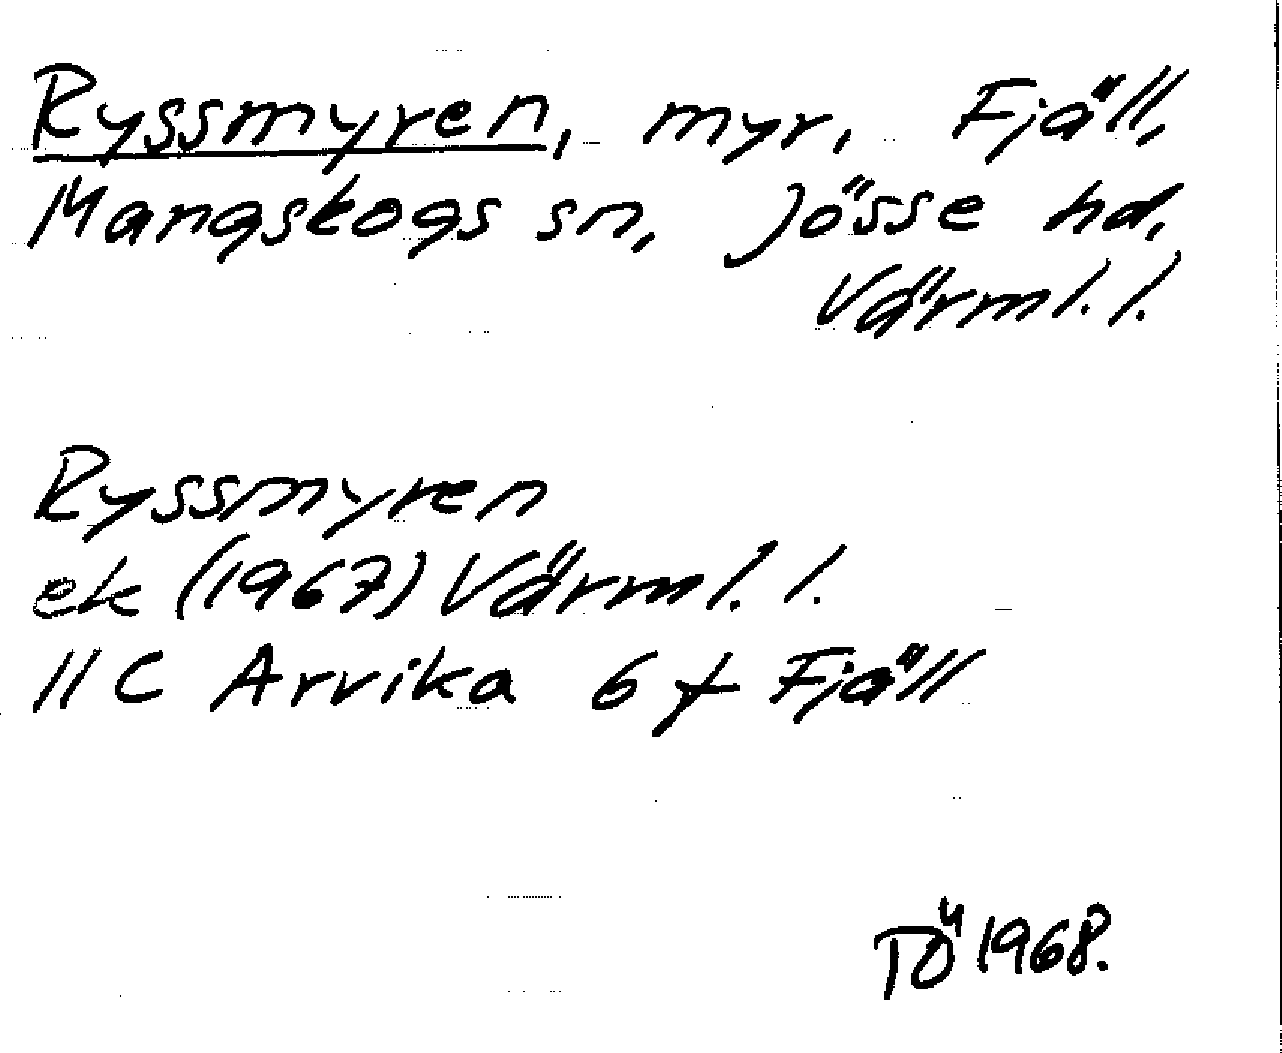 Ryssmyren, myr, Fjäll,
Mangskogs sn, Jösse hd,
Värml. l.
Ryssmyren
ek (1967) Värml. l.
11C Arvika 6 f Fjäll
TÖ 1968.